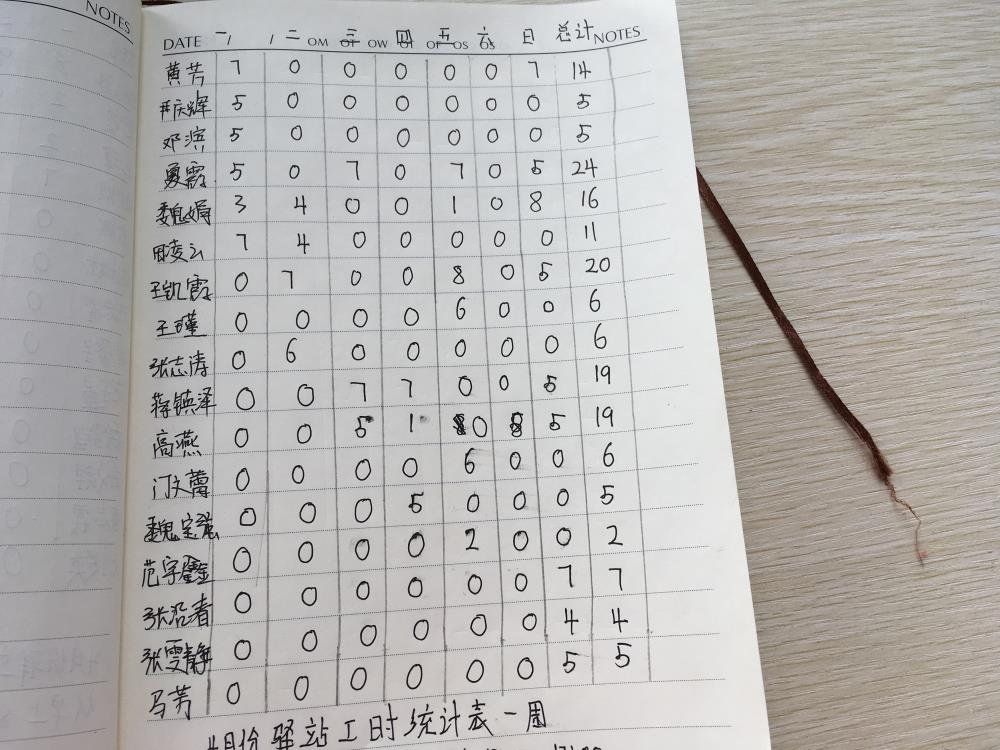 NOTES
DATE 一 二 OM 三 OW 四 五 OS 六 日 总计 NOTES
黄芳 7 0 0 0 0 0 7 14
庆辉 5 0 0 0 0 0 0 5
邓滨 5 0 0 0 0 0 0 5
夏霞 5 0 7 0 7 0 5 24
魏娟 3 4 0 0 1 0 8 16
田凌云 7 4 0 0 0 0 0 11
王凯霞 0 7 0 0 8 0 5 20
王瑾 0 0 0 0 6 0 0 6
张志涛 0 6 0 0 0 0 0 6
蒋镇泽 0 0 7 7 0 0 5 19
高燕 0 0 5 1 0 8 5 19
门文蕾 0 0 0 0 6 0 0 6
魏宝强 0 0 0 5 0 0 0 5
范宇鑫 0 0 0 0 2 0 0 2
张沿春 0 0 0 0 0 0 7 7
张雯静 0 0 0 0 0 0 4 4
马芳 0 0 0 0 0 0 5 5
月份驿站工时统计表一周